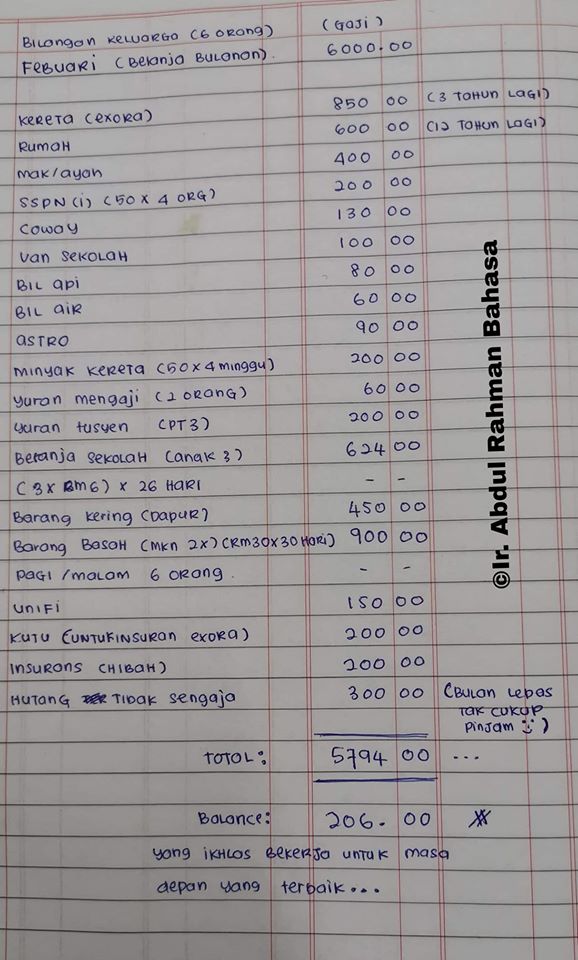 Bilangan keluarga (6 orang) (Gaji)
Febuari (Belanja Bulanan). 6000.00
Kereta (exora) 850 00 (3 Tahun lagi)
Rumah 600 00 (12 Tahun lagi)
mak/ayah 400 00
SSPN (i) (50 x 4 org) 200 00
Coway 130 00
Van sekolah 100 00
Bil api 80 00
Bil air 60 00
Astro 90 00
Minyak kereta (50x4 minggu) 200 00
Yuran mengaji (2 orang) 60 00
Yuran tusyen (PT3) 200 00
Belanja sekolah (anak 3) 624 00
(3x RM6) x 26 hari - -
Barang kering (Dapur) 450 00
Barang Basah (mkn 2x) (RM30x30 Hari) 900 00
Pagi/malam 6 orang. - -
Unifi 150 00
Kutu (untuk insuran exora) 200 00
Insurans (Hibah) 200 00
Hutang Tidak sengaja 300 00 (Bulan lepas
tak cukup
pinjam)
Total: 5794 00 ...
Balance: 206. 00
yang ikhlas bekerja untuk masa
depan yang terbaik...
©Ir. Abdul Rahman Bahasa